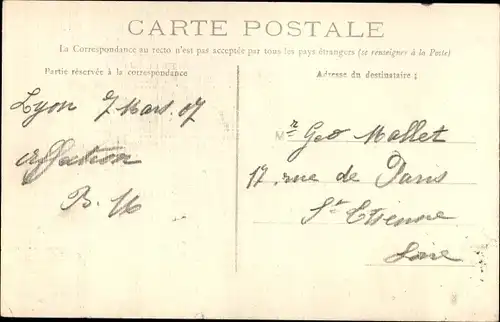 CARTE POSTALE
La Correspondance au recto n'est pas acceptée par tous les pays étrangers (se renseigner à la Poste)
Partie réservée à la correspondance
Adresse du destinataire :
Lyon 7 Mars. 07
Mr Geo Mallet
17, rue de Paris
St Etienne
Loire